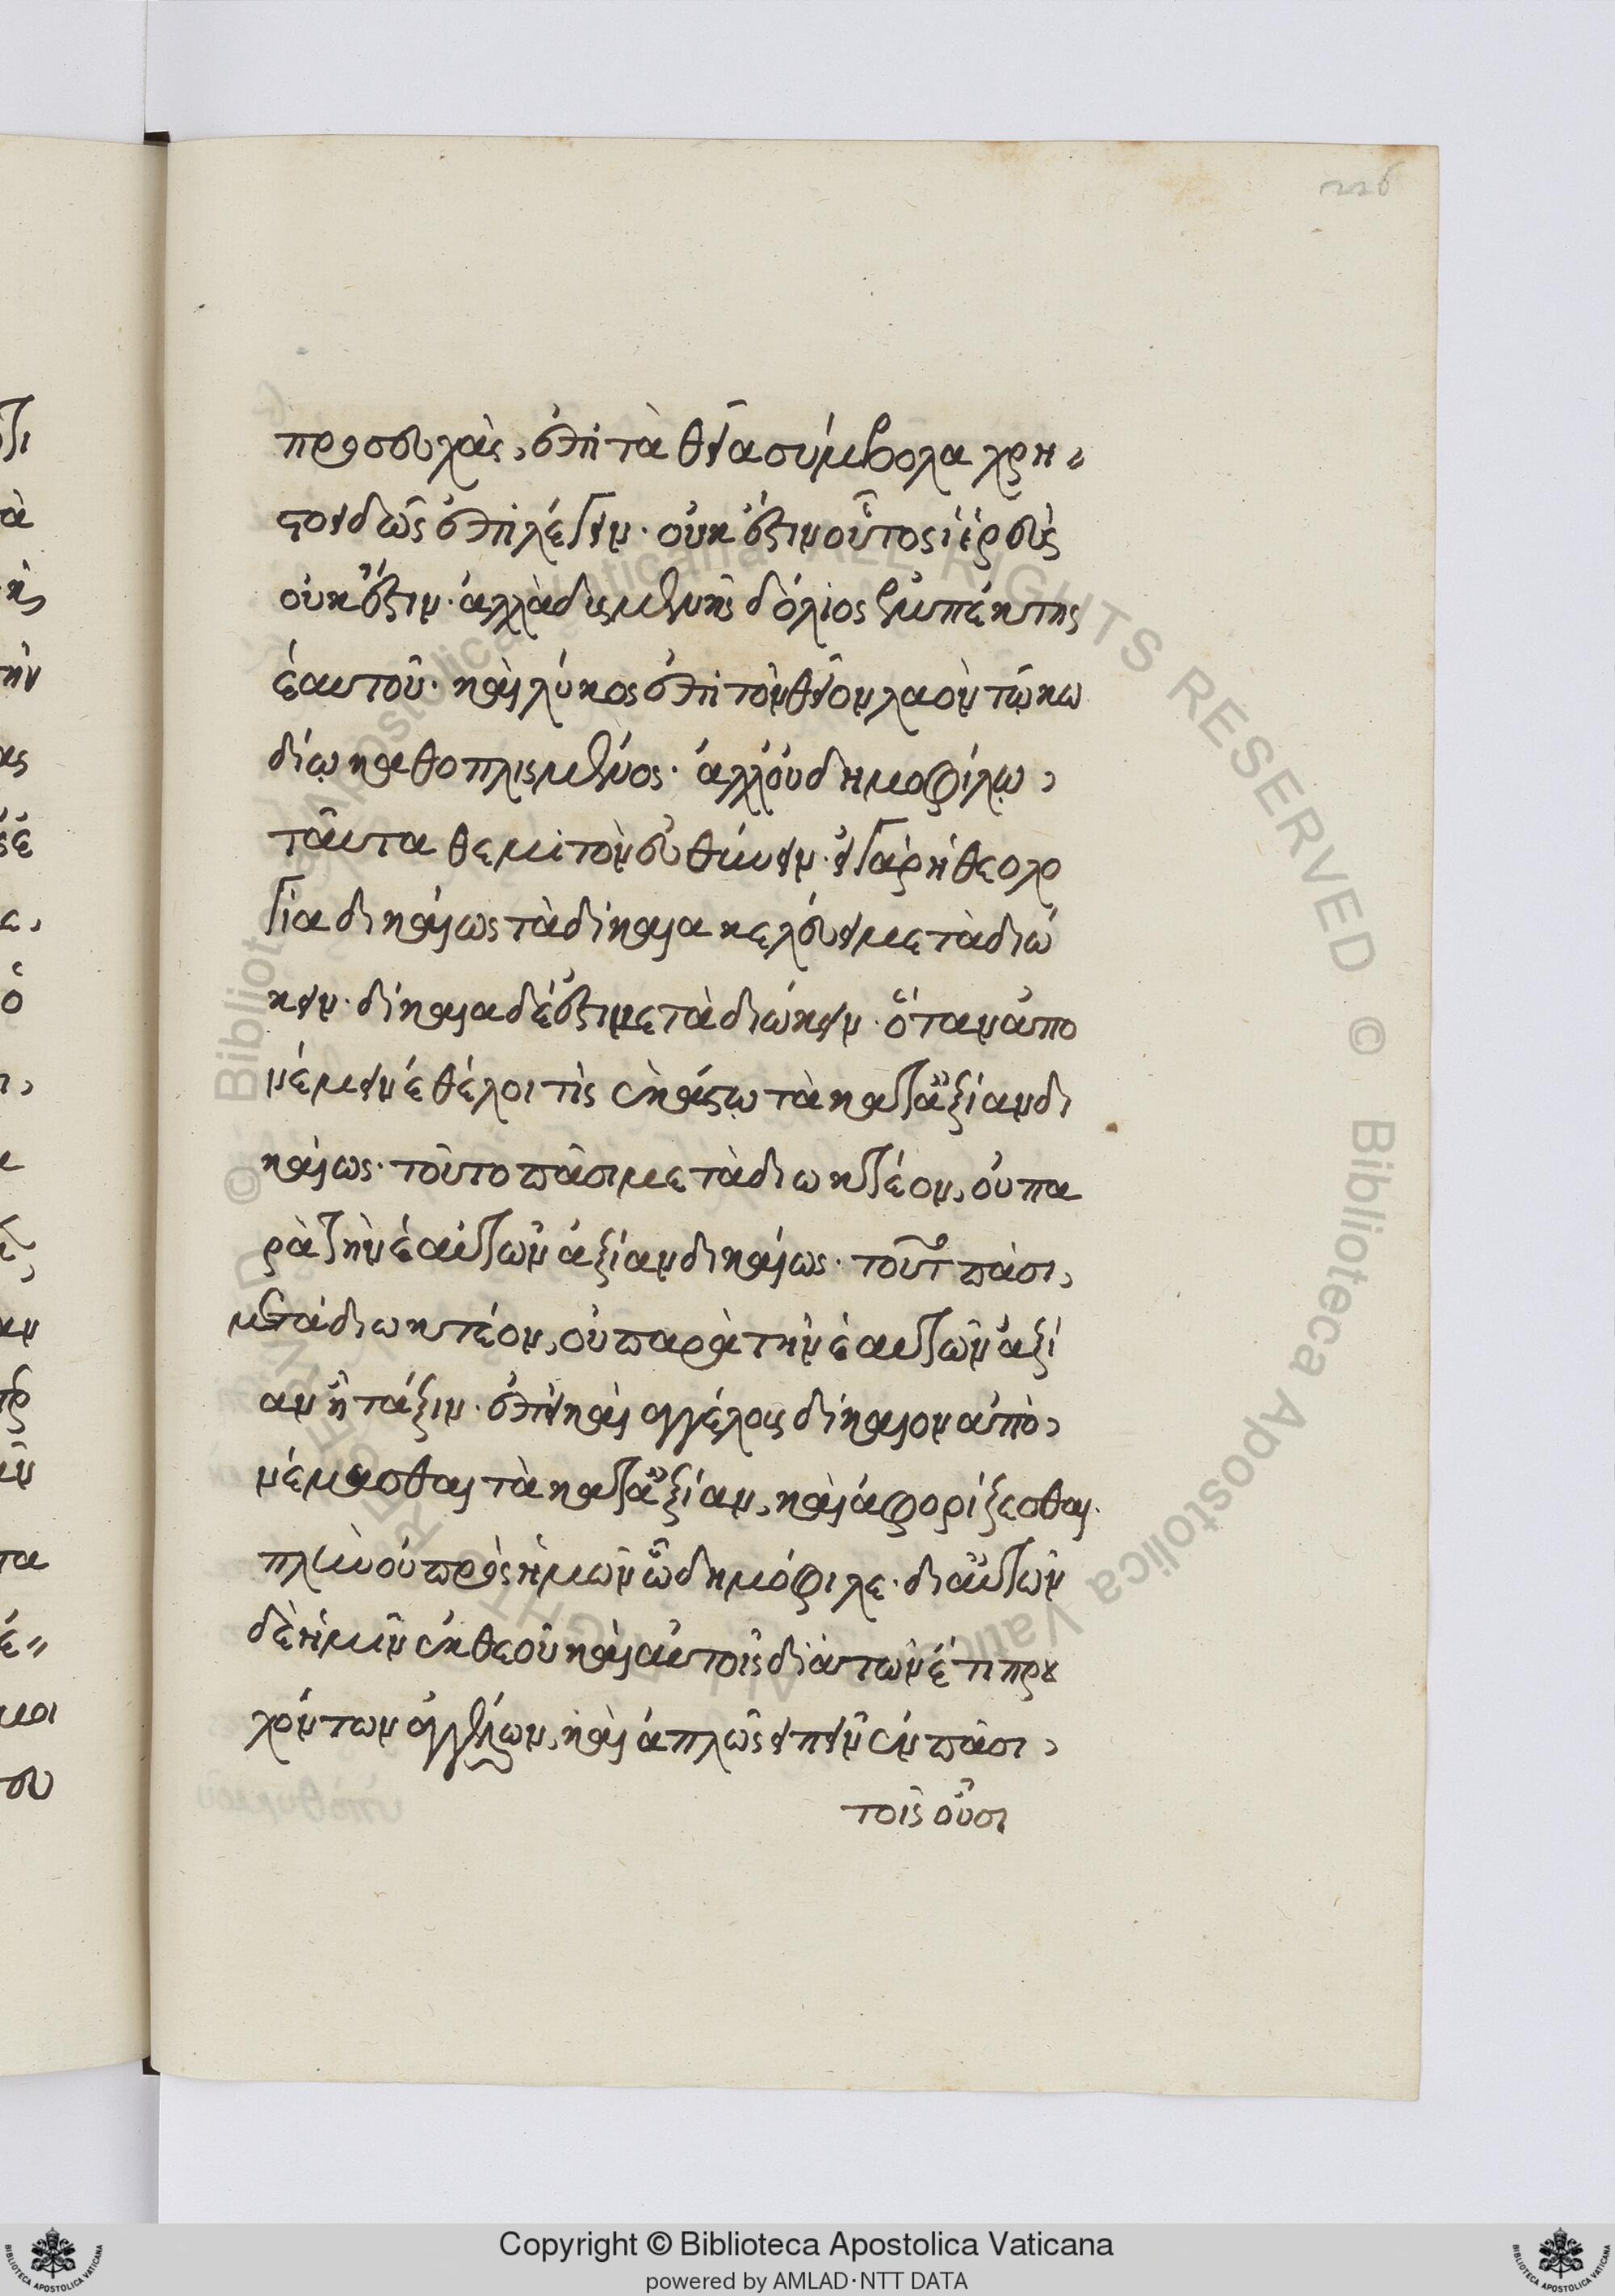 226
προσευχὰς, ἐπὶ τὰ θεῖα σύμβολα χρι
στοειδῶς ἐπιλέγειν. οὐκ ἔστιν οὗτος ἱερεὺς
οὐκ ἔστιν. ἀλλὰ δυσμενὴς δόλιος ἐμπέκτης
ἑαυτοῦ. καὶ λύκος ἐπὶ τὸν θεῖον λαὸν τῷ κω
δίῳ καθοπλισμένος. ἀλλ' οὐ δημοφίλῳ,
ταῦτα θεμιτὸν εὐθύνειν. εἰ γὰρ ἡ θεολο
γία δικαίως τὰ δίκαια κελεύει μεταδιώ
κειν. δίκαια δέ ἐστι μεταδιώκειν. ὅταν ἀπο
νέμειν ἐθέλοι τὶς ἑκάστῳ τὰ κατ' ἀξίαν δι
καίως. τοῦτο πᾶσι μεταδιωκτέον, οὐ πα
ρὰ τὴν ἑαυτῶν ἀξίαν δικαίως. τοῦτο πᾶσι,
μεταδιωκτέον, οὐ παρὰ τὴν ἑαυτῶν ἀξί
αν ἢ τάξιν. ἐπεὶ καὶ ἀγγέλοις δίκαιον ἀπο
νέμεσθαι τὰ κατ' ἀξίαν, καὶ ἀφορίζεσθαι.
πλὴν οὐ πρὸς ἡμῶν ὦ δημόφιλε. δι' αὐτῶν
δὲ ἡμῖν ἐκ θεοῦ καὶ αὐτοῖς διὰ τῶν ἔτι πρου
χόντων ἀγγέλων, καὶ ἁπλῶς εἰπεῖν ἐν πᾶσι,
τοῖς οὖσι
Copyright © Biblioteca Apostolica Vaticana
powered by AMLAD·NTT DATA